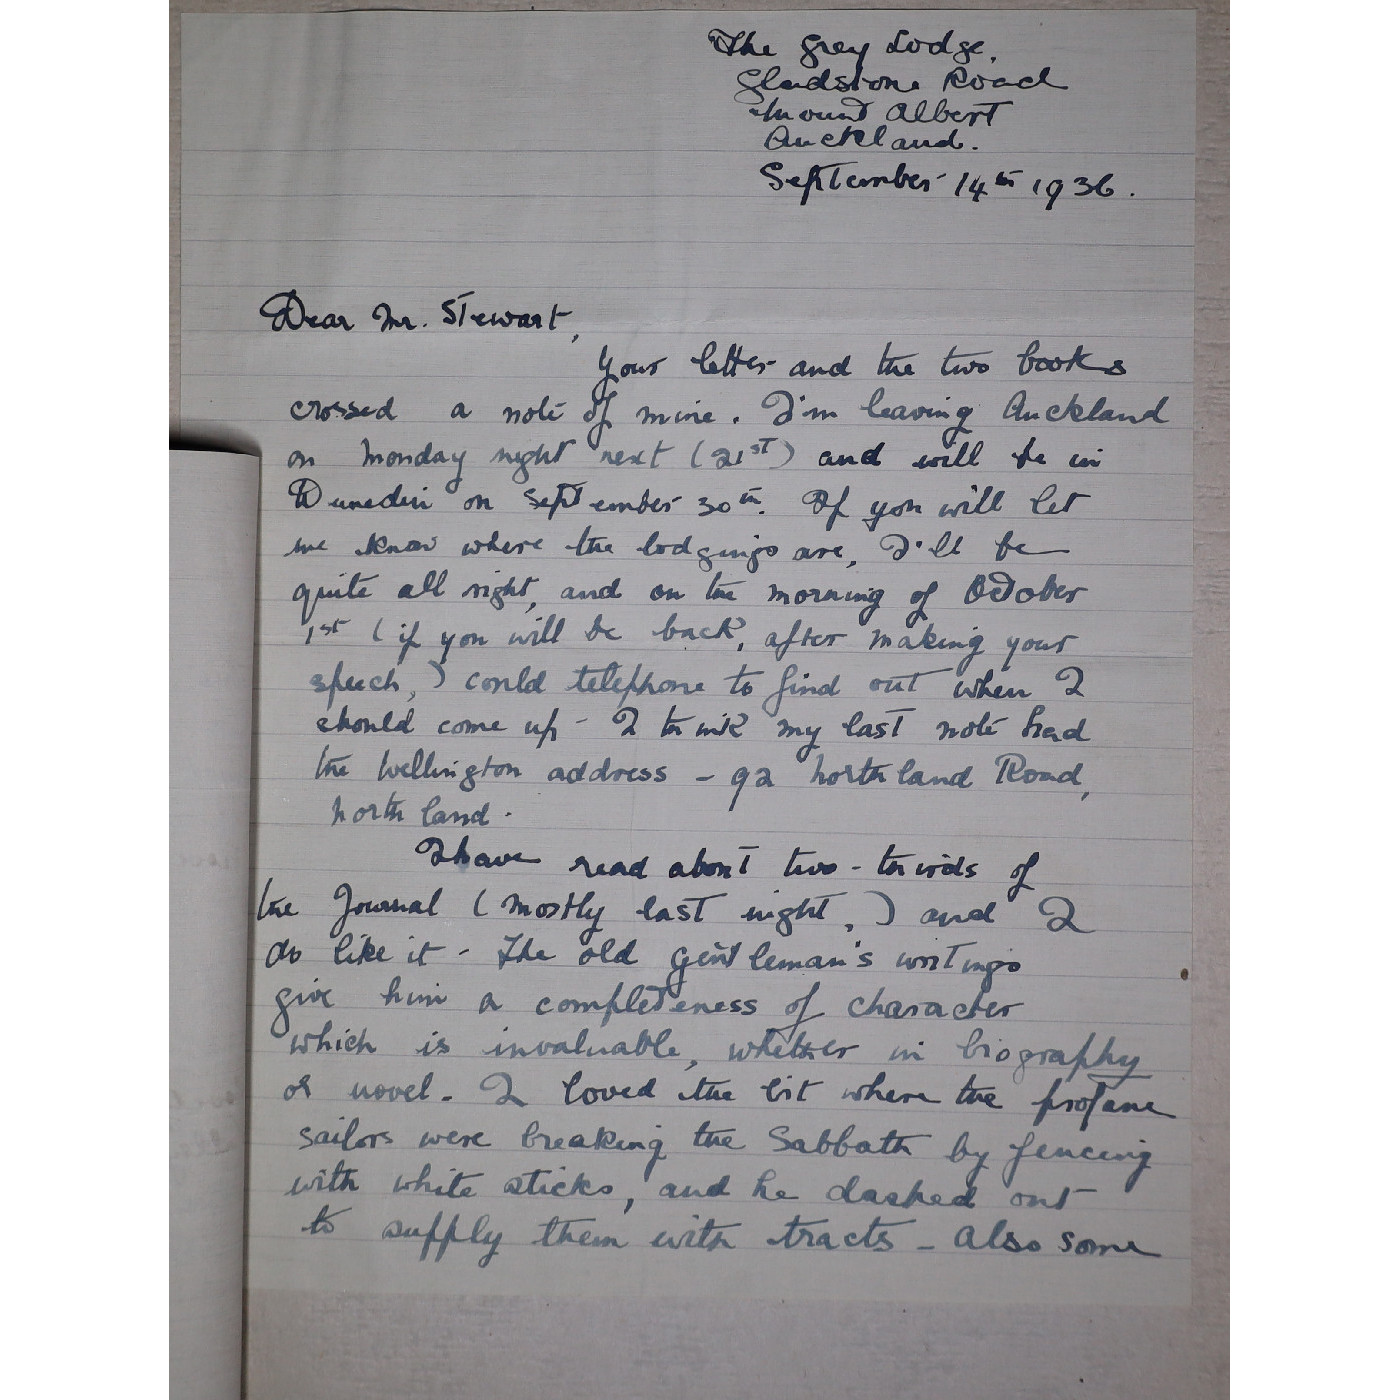 "The Grey Lodge,
Gladstone Road
Mount Albert
Auckland.
September 14th 1936.
Dear Mr. Stewart,
Your letter and the two books
crossed a note of mine. I'm leaving Auckland
on Monday night next (21st) and will be in
Dunedin on September 30th. If you will let
me know where the lodgings are, I'll be
quite all right, and on the morning of October
1st (if you will be back, after making your
speech,) could telephone to find out when I
should come up - I think my last note had
the Wellington address - 92 Northland Road,
Northland.
I have read about two-thirds of
the Journal (mostly last night,) and I
do like it - The old gentleman's writings
give him a completeness of character
which is invaluable, whether in biography
or novel. I loved the bit where the profane
sailors were breaking the Sabbath by fencing
with white sticks, and he dashed out
to supply them with tracts - Also some